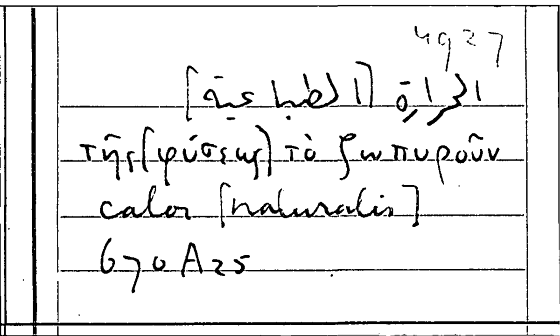 4927
الحرارة [الطباعية]
τῆς [φύσεως] τὸ ζωπυροῦν
calor [naturalis]
670 A 25